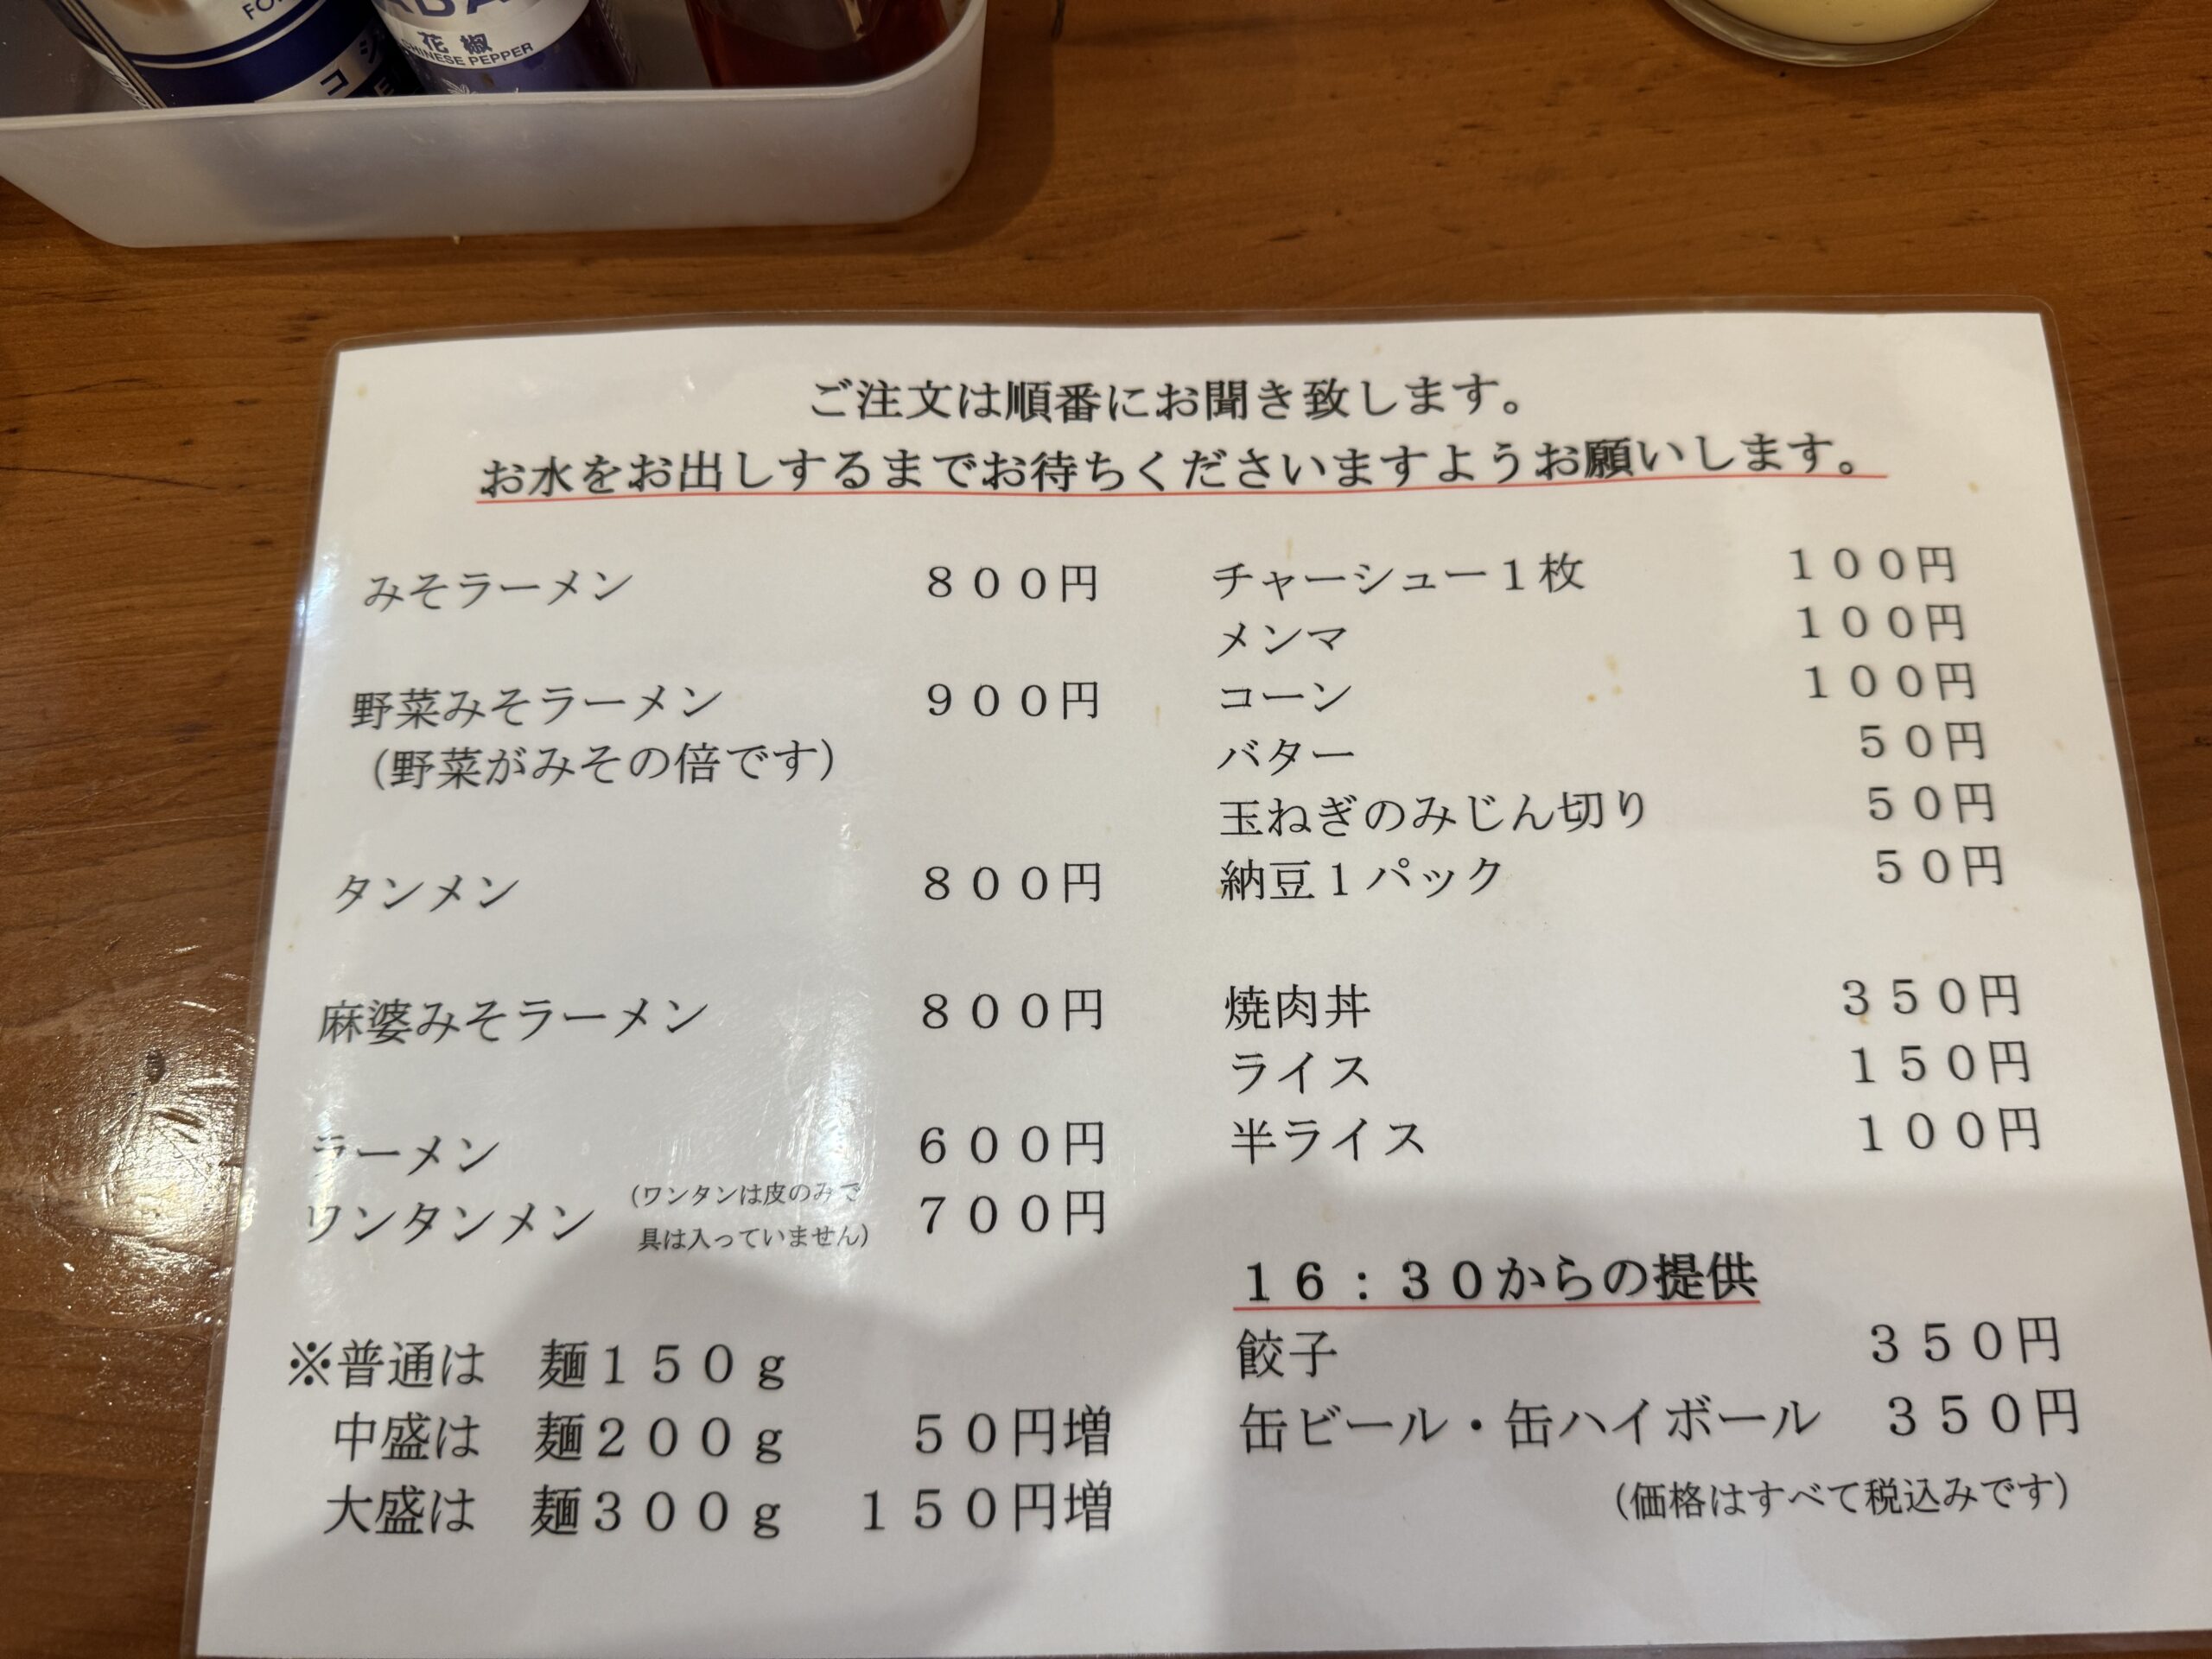 花椒
CHINESE PEPPER
ご注文は順番にお聞き致します。
お水をお出しするまでお待ちくださいますようお願いします。
みそラーメン 800円
野菜みそラーメン 900円
(野菜がみその倍です)
タンメン 800円
麻婆みそラーメン 800円
ラーメン 600円
ワンタンメン (ワンタンは皮のみで
具は入っていません) 700円
※普通は 麺150g
中盛は 麺200g 50円増
大盛は 麺300g 150円増
チャーシュー1枚 100円
メンマ 100円
コーン 100円
バター 50円
玉ねぎのみじん切り 50円
納豆1パック 50円
焼肉丼 350円
ライス 150円
半ライス 100円
16:30からの提供
餃子 350円
缶ビール・缶ハイボール 350円
(価格はすべて税込みです)